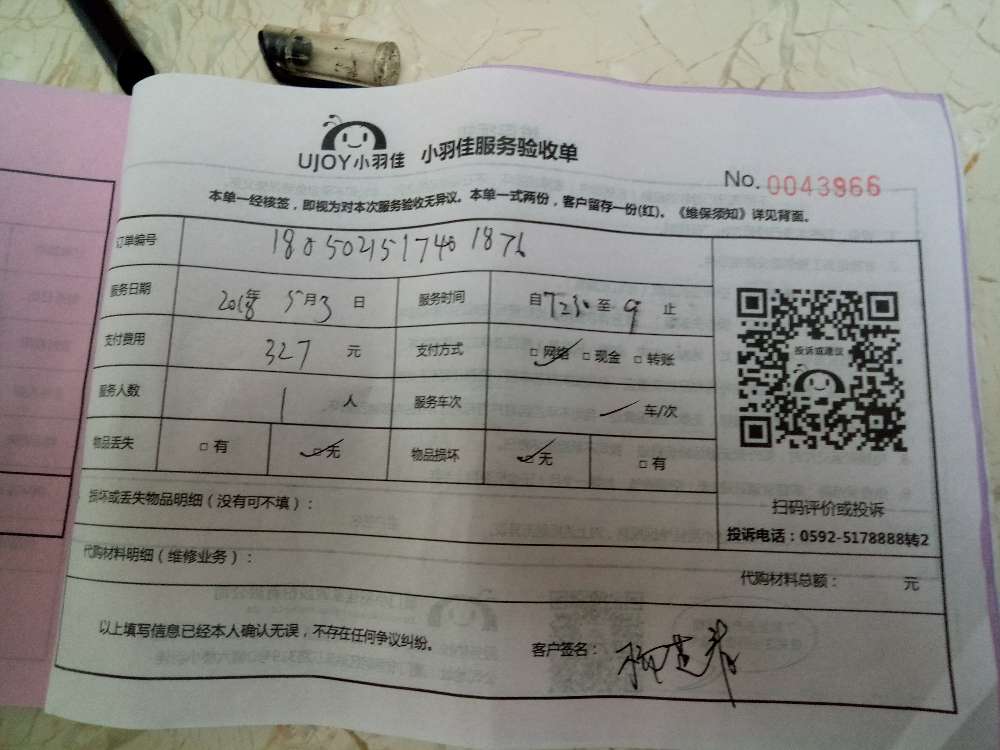 UJOY小羽佳 小羽佳服务验收单
No. 0043966
本单一经核签，即视为对本次服务验收无异议。本单一式两份，客户留存一份(红)。《维保须知》详见背面。
订单编号 1805021517401876
服务日期 2018年 5月3 日 服务时间 自7:30至9止
支付费用 327 元 支付方式 □网络 □现金 □转账
服务人数 1 人 服务车次 车/次
物品丢失 □有 □无 物品损坏 □无 □有
投诉或建议
扫码评价或投诉
投诉电话：0592-5178888转2
损坏或丢失物品明细（没有可不填）：
代购材料明细（维修业务）：
代购材料总额： 元
以上填写信息已经本人确认无误，不存在任何争议纠纷。
客户签名：